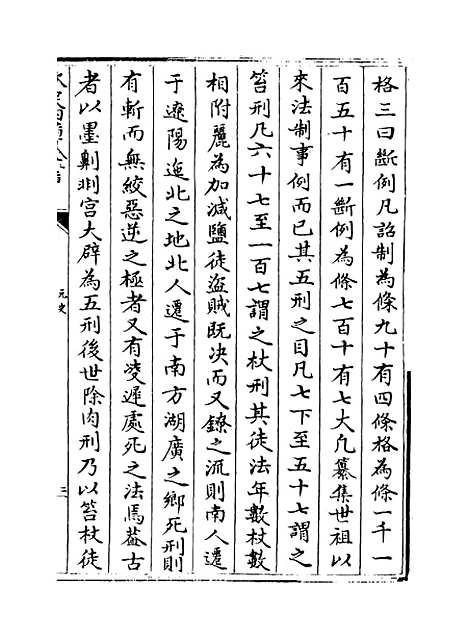 格三曰斷例凡詔制為條九十有四條格為條一千一
百五十有一斷例為條七百十有七大凡纂集世祖以
來法制事例而已其五刑之目凡七下至五十七謂之
笞刑凡六十七至一百七謂之杖刑其徒法年數杖數
相附麗為加減鹽徒盜賊既决而又鐐之流則南人遷
于遼陽迤北之地北人遷于南方湖廣之鄉死刑則
有斬而無絞惡逆之極者又有凌遲處死之法焉葢古
者以墨劓剕宫大辟為五刑後世除肉刑乃以笞杖徒
元史
三